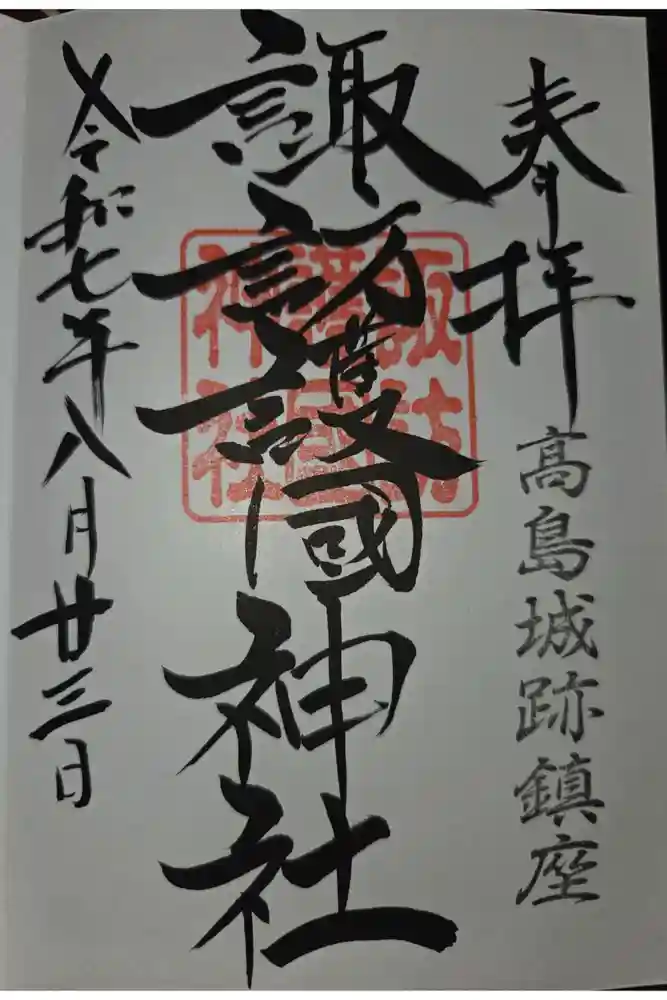 奉拝
高島城跡鎮座
諏訪護國神社
諏訪
護国
神社
令和七年八月廿三日